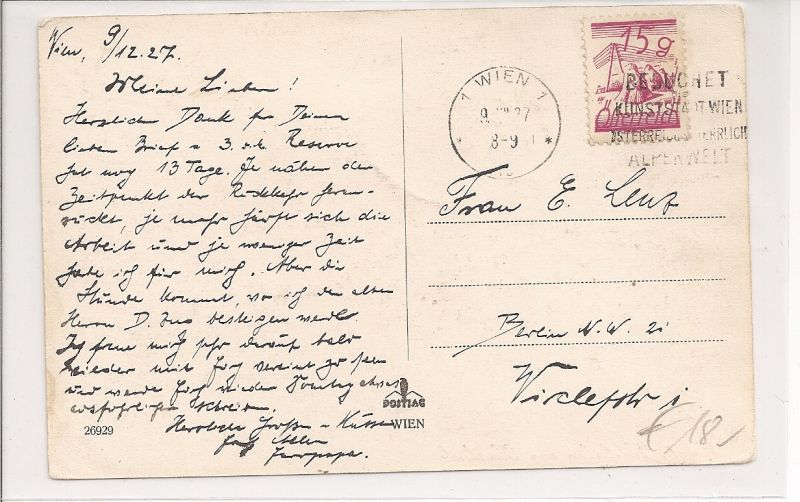 Wien, 9/12.27.
Meine Lieben!
Herzlichen Dank für Deinen
lieben Brief u. 3. d. Reserve
hat noch 13 Tage. Je näher der
Zeitpunkt der Rückkehr heran-
rückt, je mehr häuft sich die
Arbeit und je weniger Zeit
habe ich für mich. Aber die
Stunde kommt, wo ich den alten
Herrn D. Zug besteigen werde
Ich freue mich sehr darauf bald
wieder mit Euch vereint zu sein
und werde Euch wieder Sonntag etwas
ausführlicher schreiben.
Herzliche Grüße u. Küsse
26929
POSTIAG
WIEN
1 WIEN 1
9. XII. 27
8-9
15 g
Österreich
BESUCHET
KUNSTSTADT WIEN
ÖSTERREICHS HERRLICHE
ALPENWELT
Frau E. Lenz
Berlin N.W. 21
€ 18,-